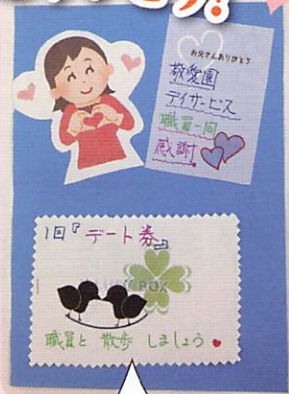 お父さんありがとう
敬愛園
デイサービス
職員一同
感謝!
1回『デート券』
職員と 散歩 しましょう